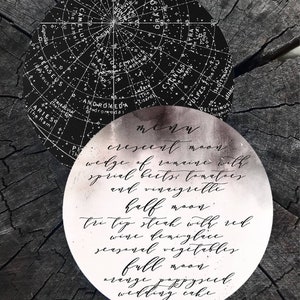 ANDROMEDA
menu
crescent moon
wedge of romaine with
sprial beets, tomatoes
and vinaigrette
half moon
tri tip steak with red
wine demi-glace
seasonal vegetables
full moon
orange poppyseed
wedding cake